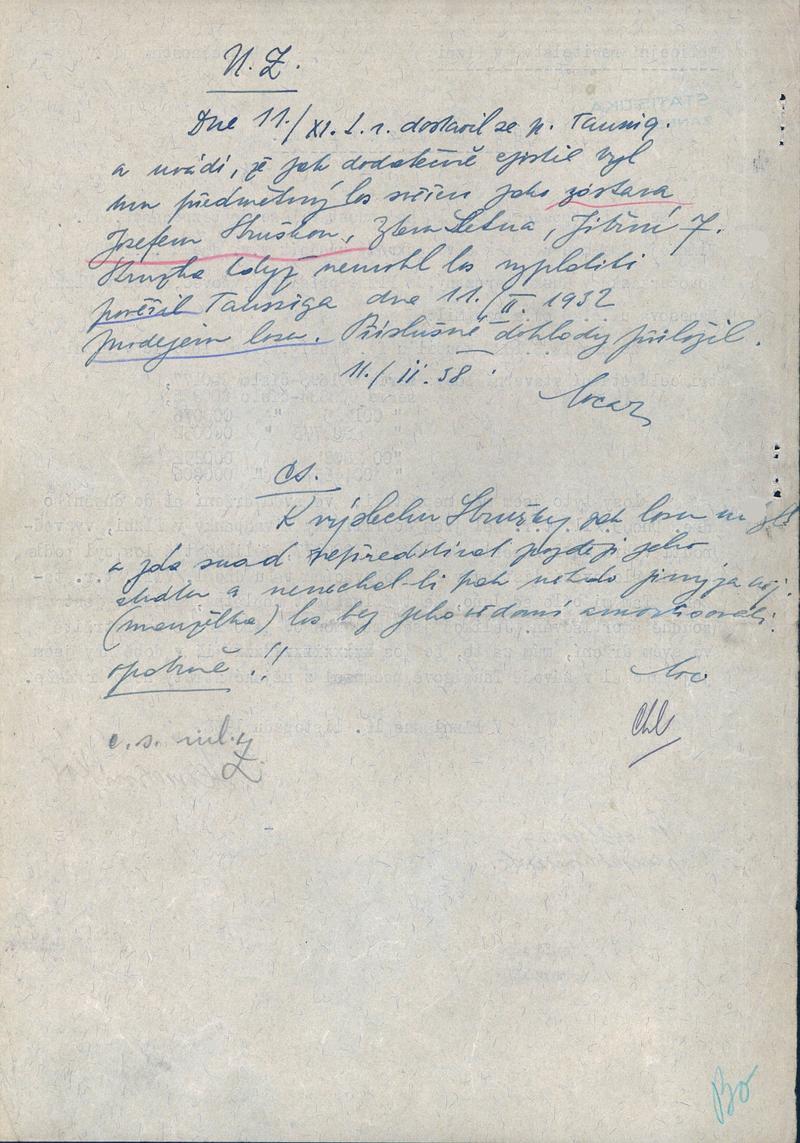 Ú. Z.
Dne 11./XI. t. r. dostavil se p. Taussig.
a uvádí, že jak dodatečně zjistil byl
mu předmětný los svěřen jako zástava
Josefem Hruškou, Zlen Letna, Jiřiní 7.
Hruška když nemohl los vyplatiti
pověřil Taussiga dne 11./II. 1932
prodejem losu. Příslušné doklady přiložil.
11./II. 38.
čs.
K výslechu Hrušky jak losu na
a zda snad nepředstíral později jeho
ztrátu a nenechal-li pak někdo jiný
(manželka) los bez jeho vědomí amortisovati.
opatrně!!
Chl
č. s.
Bo